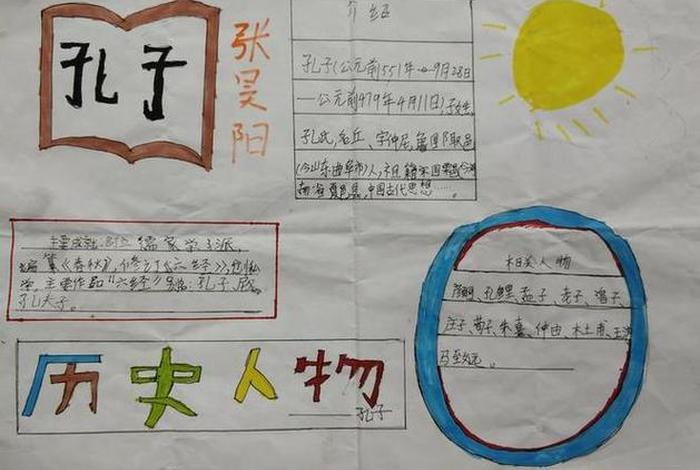 孔子
张昊阳
介绍
孔子(公元前551年 9月28日
—公元前479年4月11日),子姓,
孔氏,名丘、字仲尼,鲁国陬邑
(今山东曲阜市)人,祖籍宋国栗邑(今河
南省夏邑县,中国古代思想……
主要成就:创立儒家学派,
编纂《春秋》,修订《六经》,创私
学、主要作品“六经”别名:孔子、尼
孔夫子。
相关人物
颜回、孔鲤、孟子、老子、曾子、
庄子、荀子、朱熹、仲由、
马致远。
历史人物
孔子